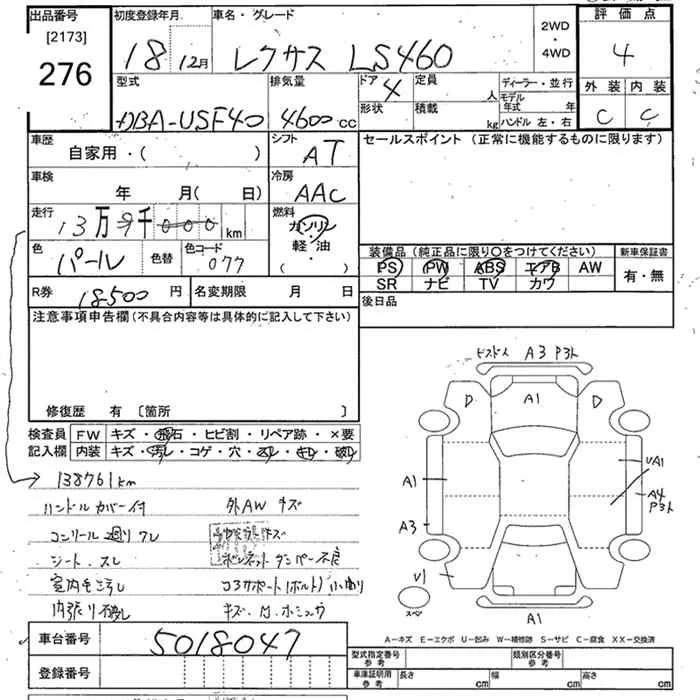 出品番号
[2173]
276
初度登録年月
18 12月
車名・グレード
レクサス LS460
2WD
・
4WD
評価点
4
外装 内装
C C
型式
DBA-USF40
排気量
4600cc
ドア 4
形状
定員 人
積載 kg
ディーラー・並行
モデル年式 年
ハンドル 左・右
車歴
自家用・( )
シフト
AT
セールスポイント(正常に機能するものに限ります)
車検
年 月( 日)
冷房
AAC
走行
13万9千000km
燃料
ガソリン
軽・油
( )
色
パール
色替
色コード
077
装備品(純正品に限り○をつけてください)
新車保証書
PS PW ABS エアB AW
SR ナビ TV カワ
有・無
R券 18500円
名変期限 月 日
後日品
注意事項申告欄(不具合内容等は具体的に記入して下さい)
修復歴 有 〔箇所 〕
検査員記入欄
FW キズ・飛石・ヒビ割・リペア跡・×要
内装 キズ・汚レ・コゲ・穴・スレ・キレ・破レ
138761km
ハンドルカバー付
外AWキズ
シート、スレ
室内モゴ汚し
A3 P3ト
A1
D D
A1
A3
U1
A4
P3ト
スペア
A1
A-キズ E-エクボ U-凹み W-補修跡 S-サビ C-腐食 XX-交換済
車台番号
5018047
登録番号
型式指定番号
参考
類別区分番号
参考
車庫証明用
参考
長さ cm
幅 cm
高さ cm